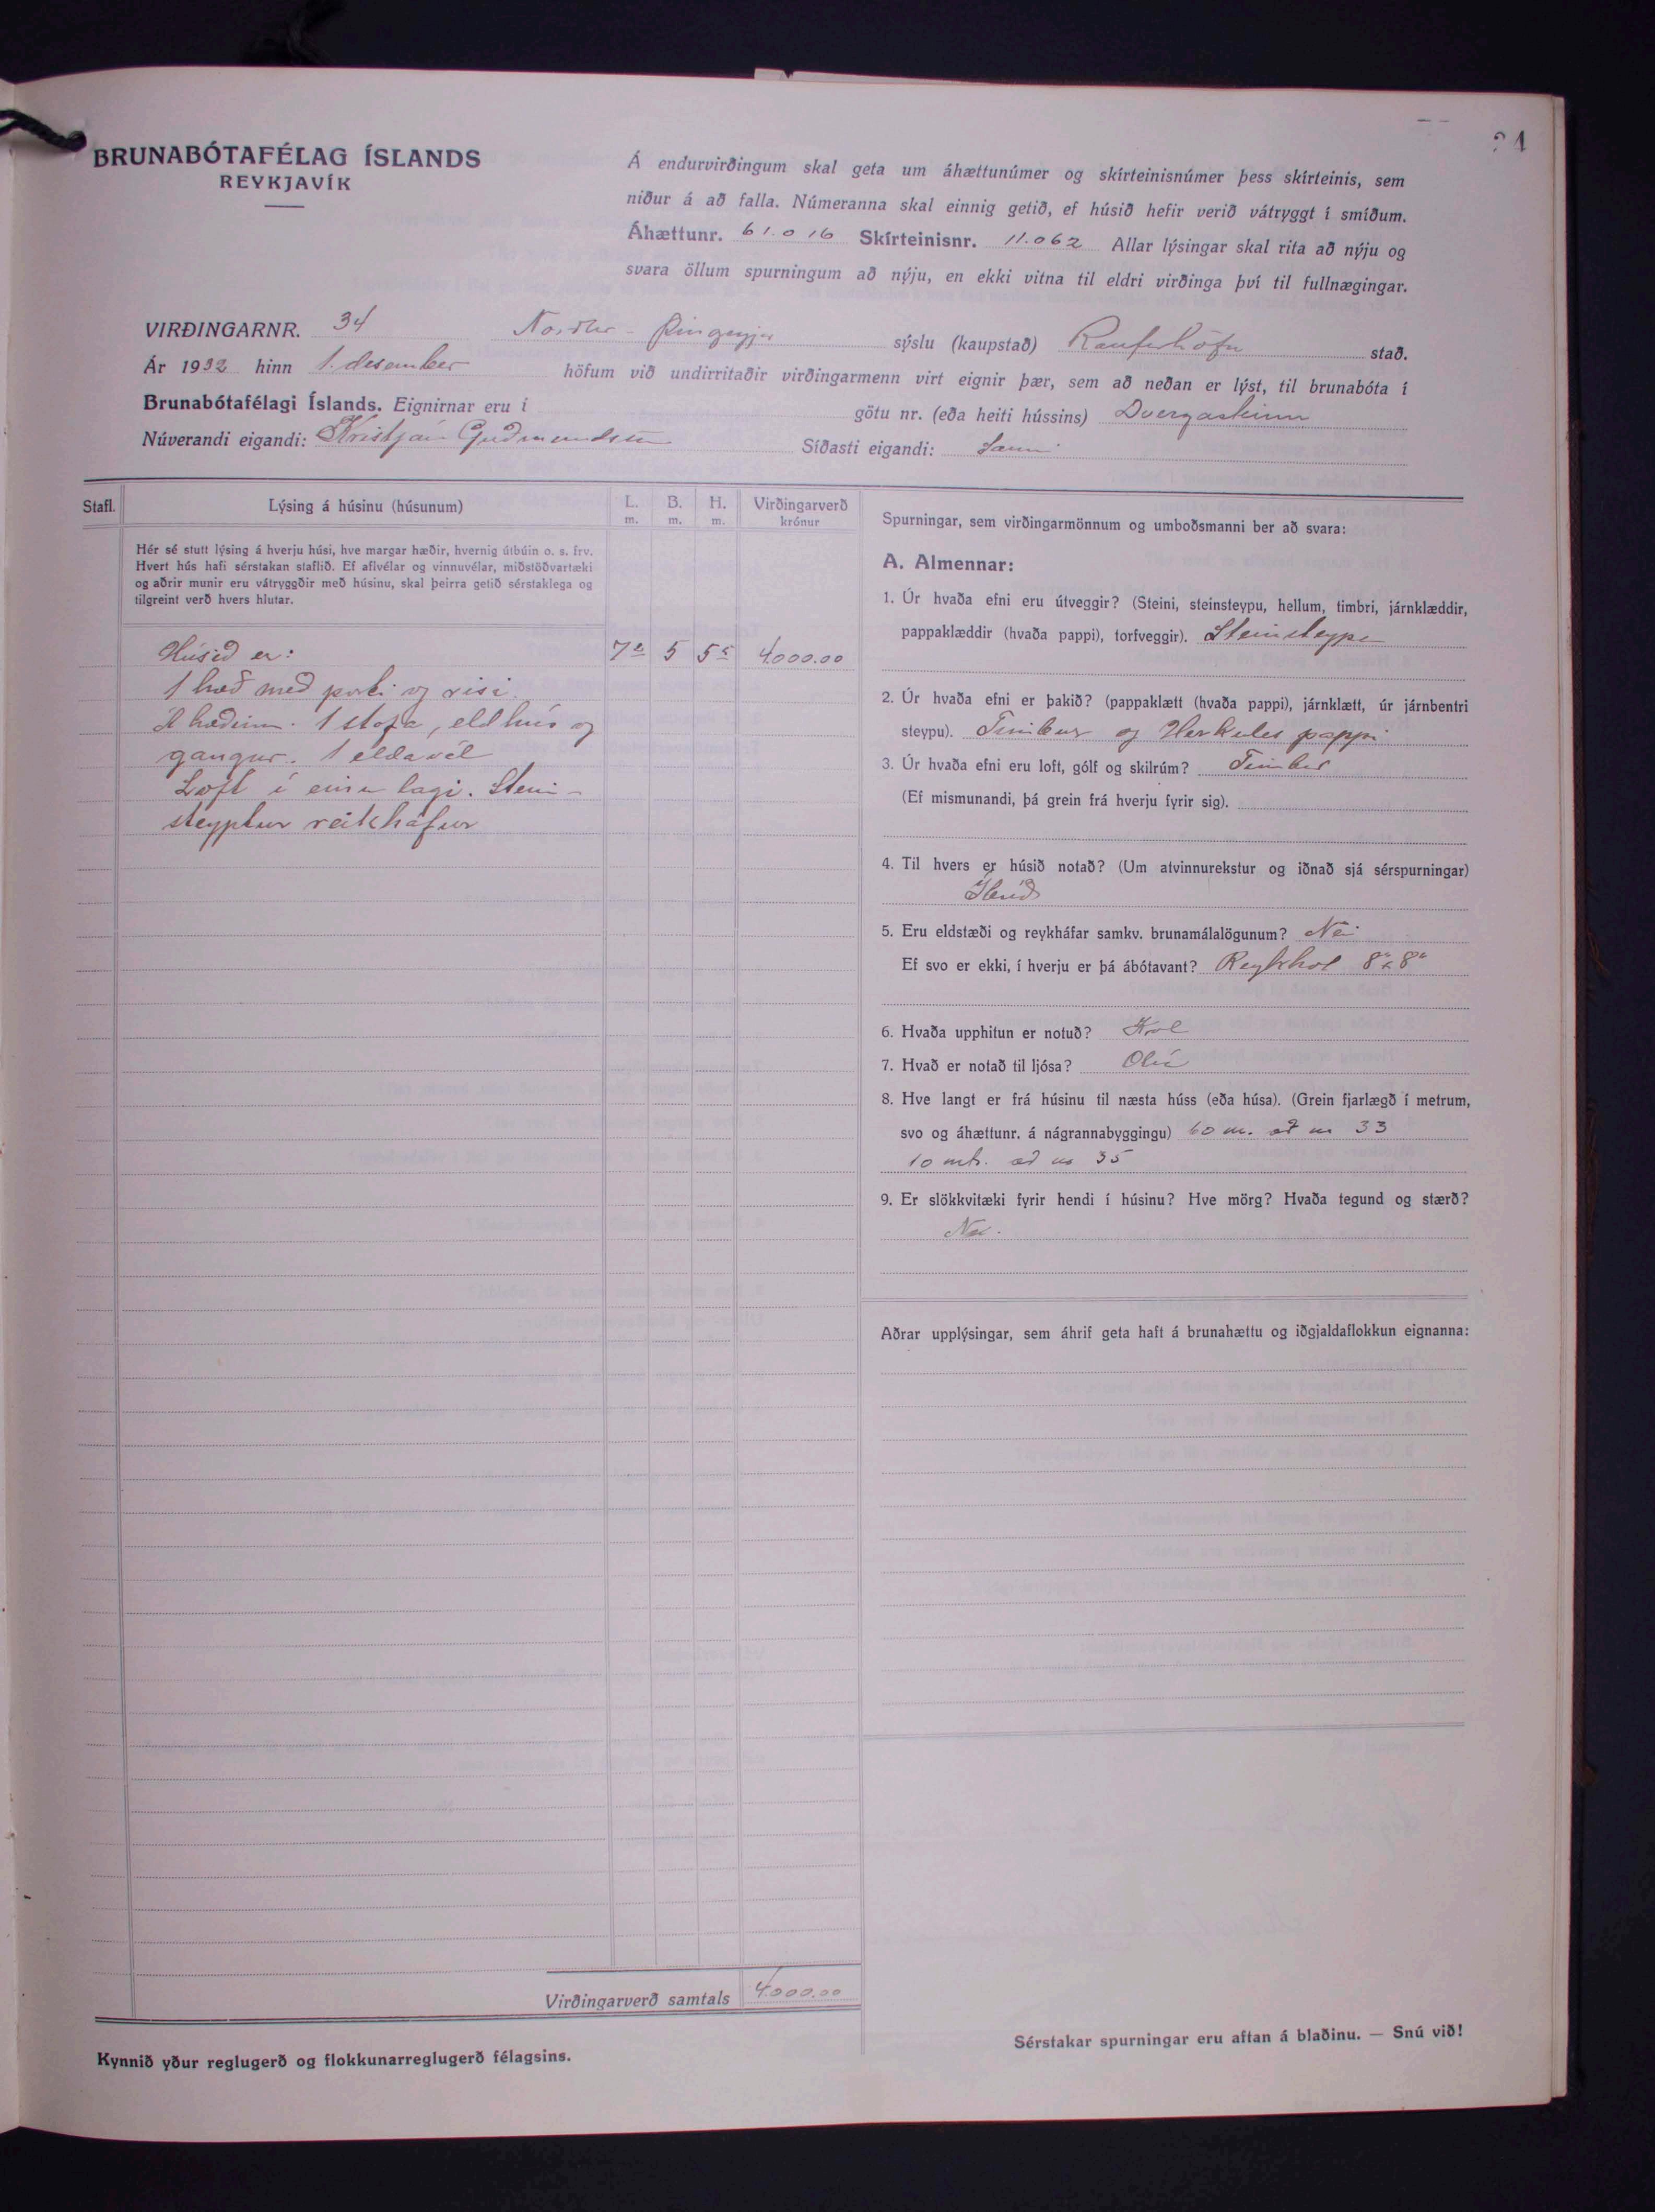 BRUNABÓTAFÉLAG ÍSLANDS
REYKJAVÍK
Á endurvirðingum skal geta um áhættunúmer og skírteinisnúmer þess skírteinis, sem
niður á að falla. Númeranna skal einnig getið, ef húsið hefir verið vátryggt í smíðum.
Áhættunr. 61.016 Skírteinisnr. 11.062 Allar lýsingar skal rita að nýju og
svara öllum spurningum að nýju, en ekki vitna til eldri virðinga því til fullnægingar.
VIRÐINGARNR. 34 Norður-Þingeyjar sýslu (kaupstað) Raufarhöfn stað.
Ár 1932 hinn 1. desember höfum við undirritaðir virðingarmenn virt eignir þær, sem að neðan er lýst, til brunabóta í
Brunabótafélagi Íslands. Eignirnar eru í götu nr. (eða heiti hússins) Dvergasteinn
Núverandi eigandi: Kristján Guðmundsson Síðasti eigandi: Sami
Stafl. Lýsing á húsinu (húsunum) L. m. B. m. H. m. Virðingarverð krónur
Hér sé stutt lýsing á hverju húsi, hve margar hæðir, hvernig útbúin o. s. frv.
Hvert hús hafi sérstakan staflið. Ef aflvélar og vinnuvélar, miðstöðvartæki
og aðrir munir eru vátryggðir með húsinu, skal þeirra getið sérstaklega og
tilgreint verð hvers hlutar.
Húsið er: 5 4.000.00
1 hæð með porti og risi.
Á hæðinni. 1 stofa, eldhús og
gangur. 1 eldavél
Loft í einu lagi. Stein-
steyptur reikháfur
Virðingarverð samtals 4.000.00
Kynnið yður reglugerð og flokkunarreglugerð félagsins.
Spurningar, sem virðingarmönnum og umboðsmanni ber að svara:
A. Almennar:
1. Úr hvaða efni eru útveggir? (Steini, steinsteypu, hellum, timbri, járnklæddir,
pappaklæddir (hvaða pappi), torfveggir). Steinsteypa
2. Úr hvaða efni er þakið? (pappaklætt (hvaða pappi), járnklætt, úr járnbentri
steypu). Timbur og Herkules pappi
3. Úr hvaða efni eru loft, gólf og skilrúm? Timbur
(Ef mismunandi, þá grein frá hverju fyrir sig).
4. Til hvers er húsið notað? (Um atvinnurekstur og iðnað sjá sérspurningar)
Íbúð
5. Eru eldstæði og reykháfar samkv. brunamálalögunum? Nei
Ef svo er ekki, í hverju er þá ábótavant? Reykhol 8"x8"
6. Hvaða upphitun er notuð? Kol
7. Hvað er notað til ljósa? Olía
8. Hve langt er frá húsinu til næsta húss (eða húsa). (Grein fjarlægð í metrum,
svo og áhættunr. á nágrannabyggingu) 60 m. að nr 33
10 mtr. að nr 35
9. Er slökkvitæki fyrir hendi í húsinu? Hve mörg? Hvaða tegund og stærð?
Nei.
Aðrar upplýsingar, sem áhrif geta haft á brunahættu og iðgjaldaflokkun eignanna:
Sérstakar spurningar eru aftan á blaðinu. — Snú við!